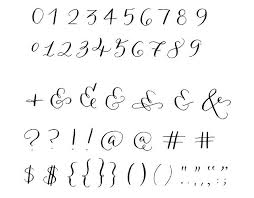 0 1 2 3 4 5 6 7 8 9
0 1 2 3 4 5 6 7 8 9
+ & & & & & &
? ? ! ! @ @ # #
$ $ { } { } ( ) ( ) " " “ ” . , . , : ;